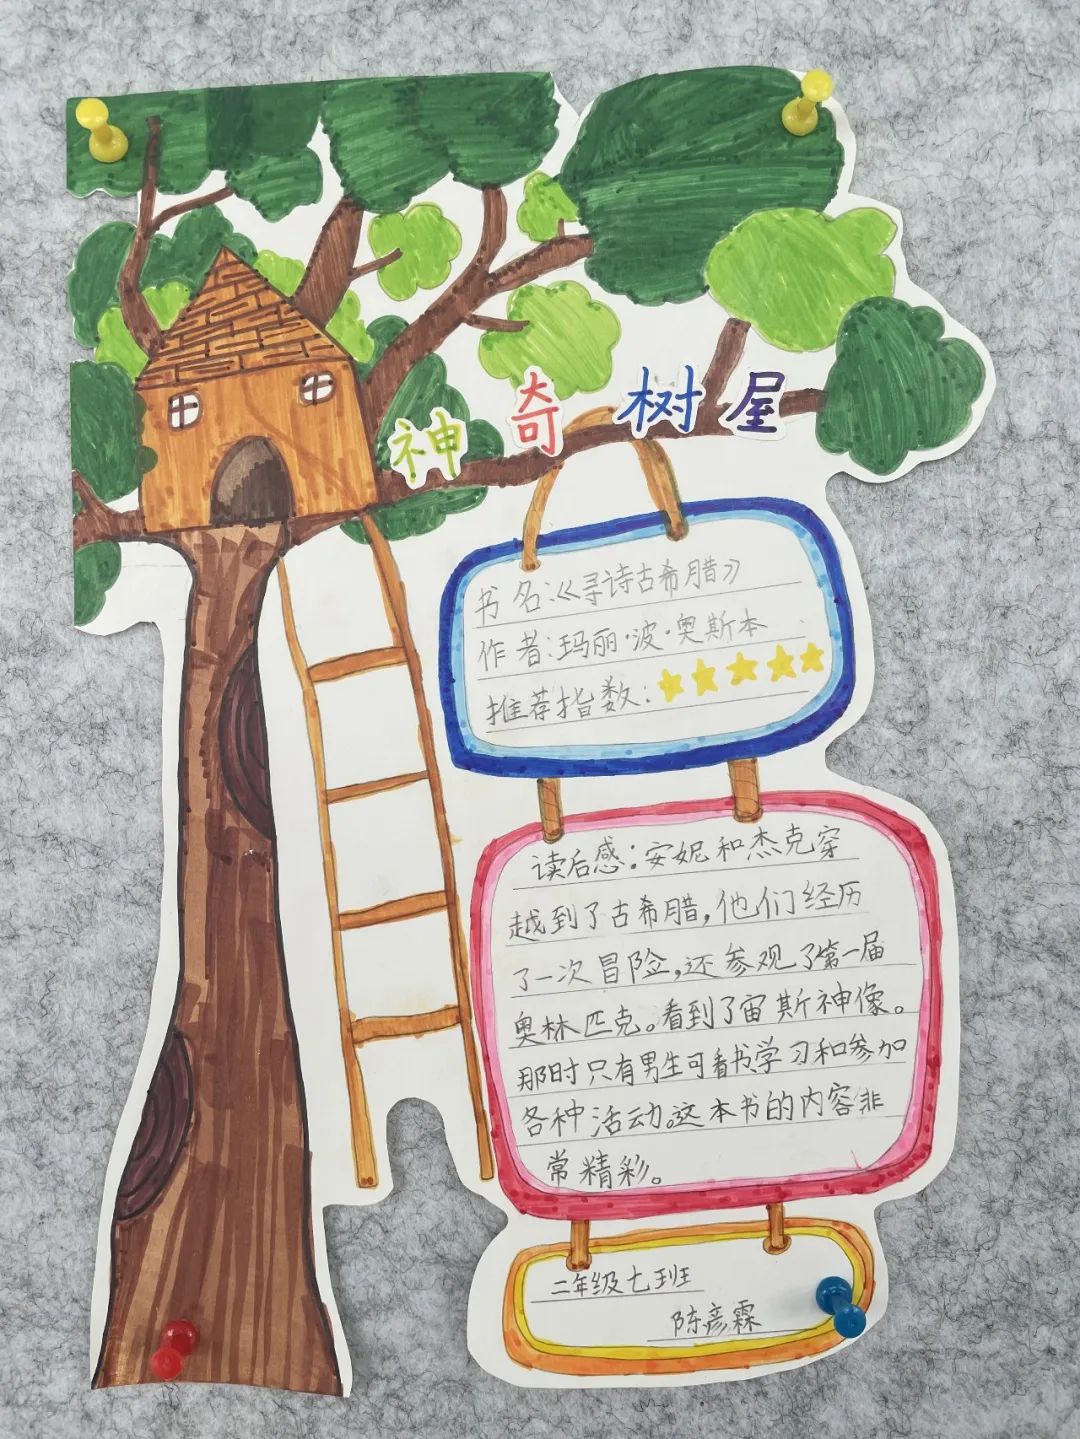 神奇树屋
书名:《寻诗古希腊》
作者:玛丽·波·奥斯本
推荐指数:
读后感:安妮和杰克穿
越到了古希腊,他们经历
了一次冒险,还参观了第一届
奥林匹克。看到了宙斯神像。
那时只有男生可看书学习和参加
各种活动。这本书的内容非
常精彩。
二年级七班
陈彦霖